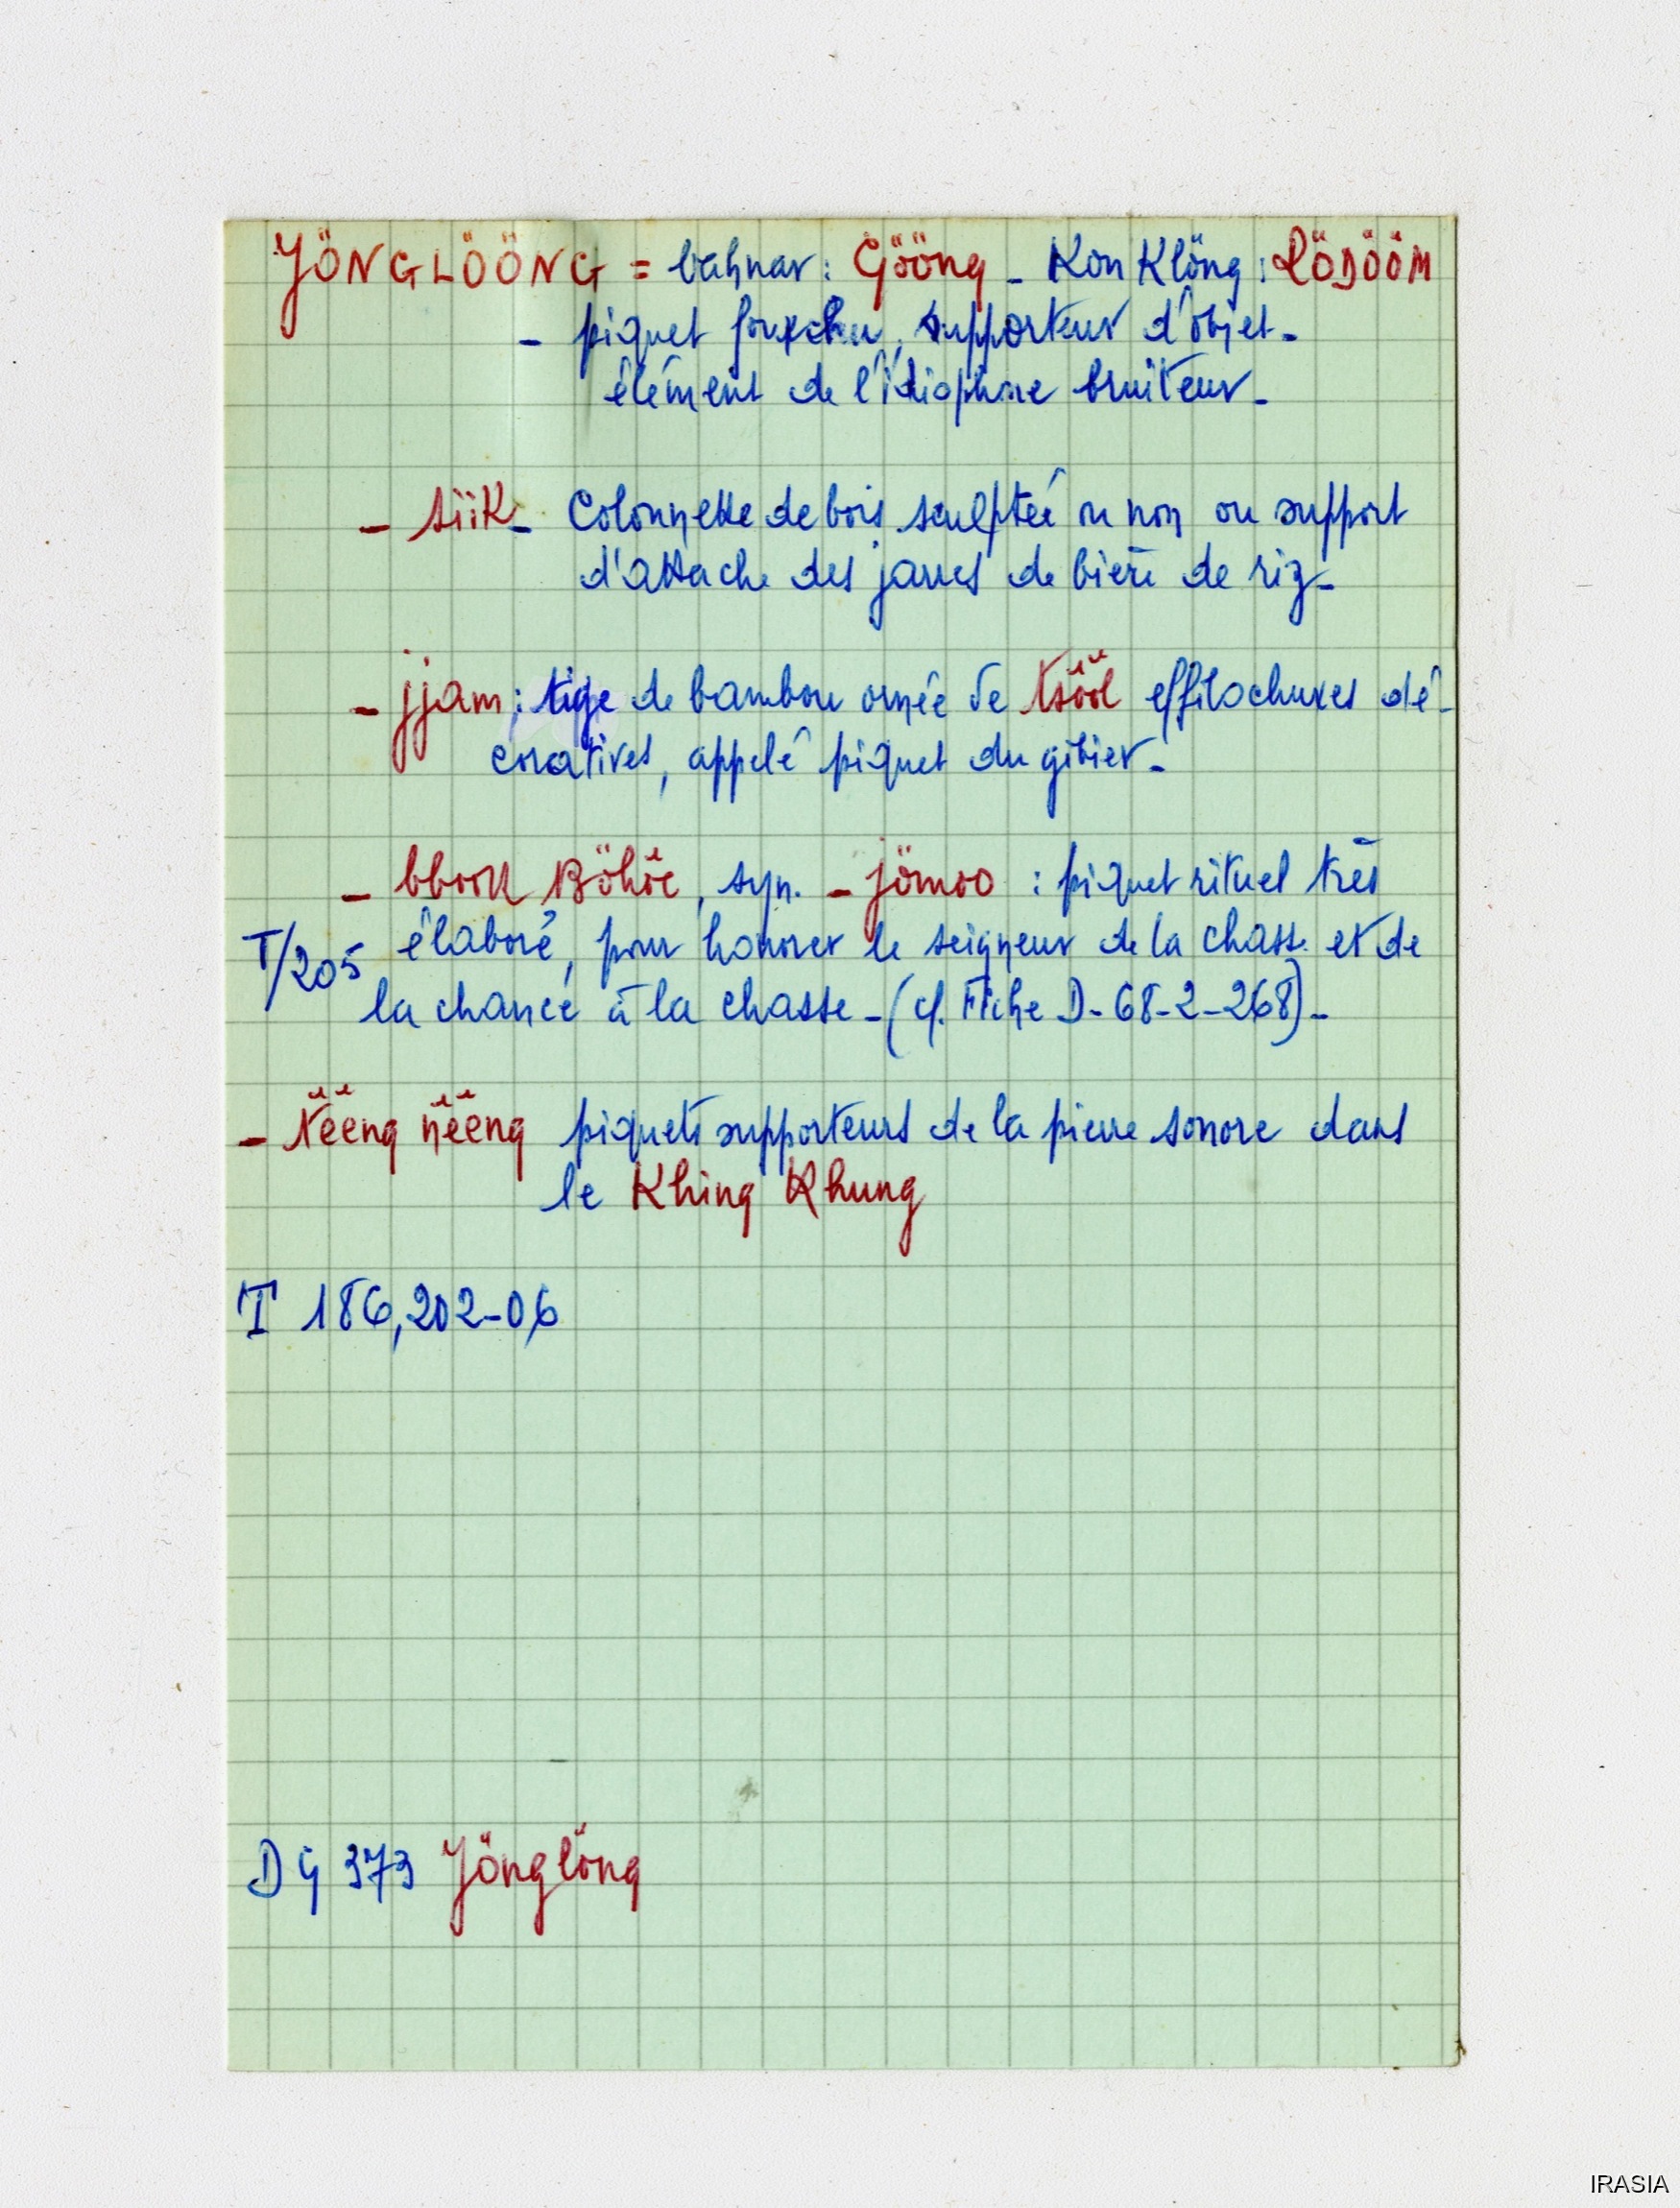 JÖNGLÖÖNG = bahnar : Gööng - Kon Klöng : RÖDÖÖM
- piquet fourchu, supporteur d'objet -
élément de l'idiophone bruiteur -
- siik - Colonnette de bois sculptée ou non ou support
d'attache des jarres de bière de riz -
- jjam : tige de bambou ornée de tsööl effilochures dé-
coratives, appelé piquet du gibier -
- bbook Böhöc, syn. - jömoo : piquet rituel très
T/205 élaboré, pour honorer le seigneur de la chasse et de
la chance à la chasse - (cf. Fiche D-68-2-268) -
- tëëng nëëng piquets supporteurs de la pierre sonore dans
le Khing Khung
T 186, 202-06
DG 373 Jönglöng
IRASIA